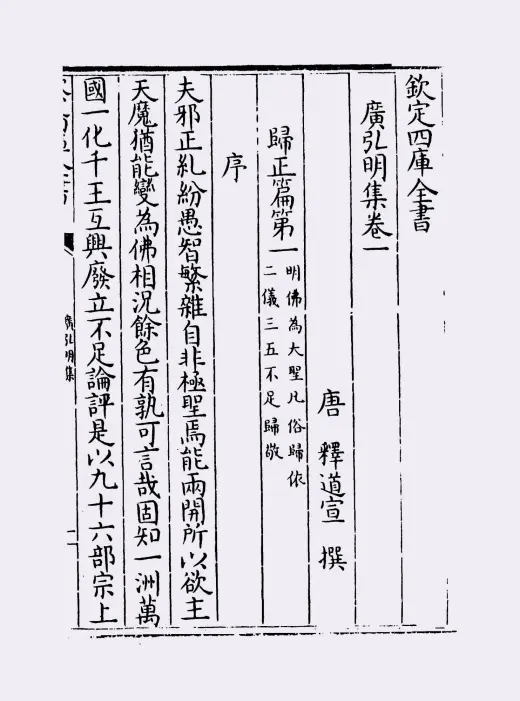 欽定四庫全書
廣弘明集卷一
唐 釋道宣 撰
歸正篇第一
明佛為大聖凡俗歸依
二儀三五不足歸敬
序
夫邪正糺紛愚智繁雜自非極聖焉能兩開所以欲主
天魔猶能變為佛相況餘色有孰可言哉固知一洲萬
國一化千王互興廢立不足論評是以九十六部宗上
廣弘明集